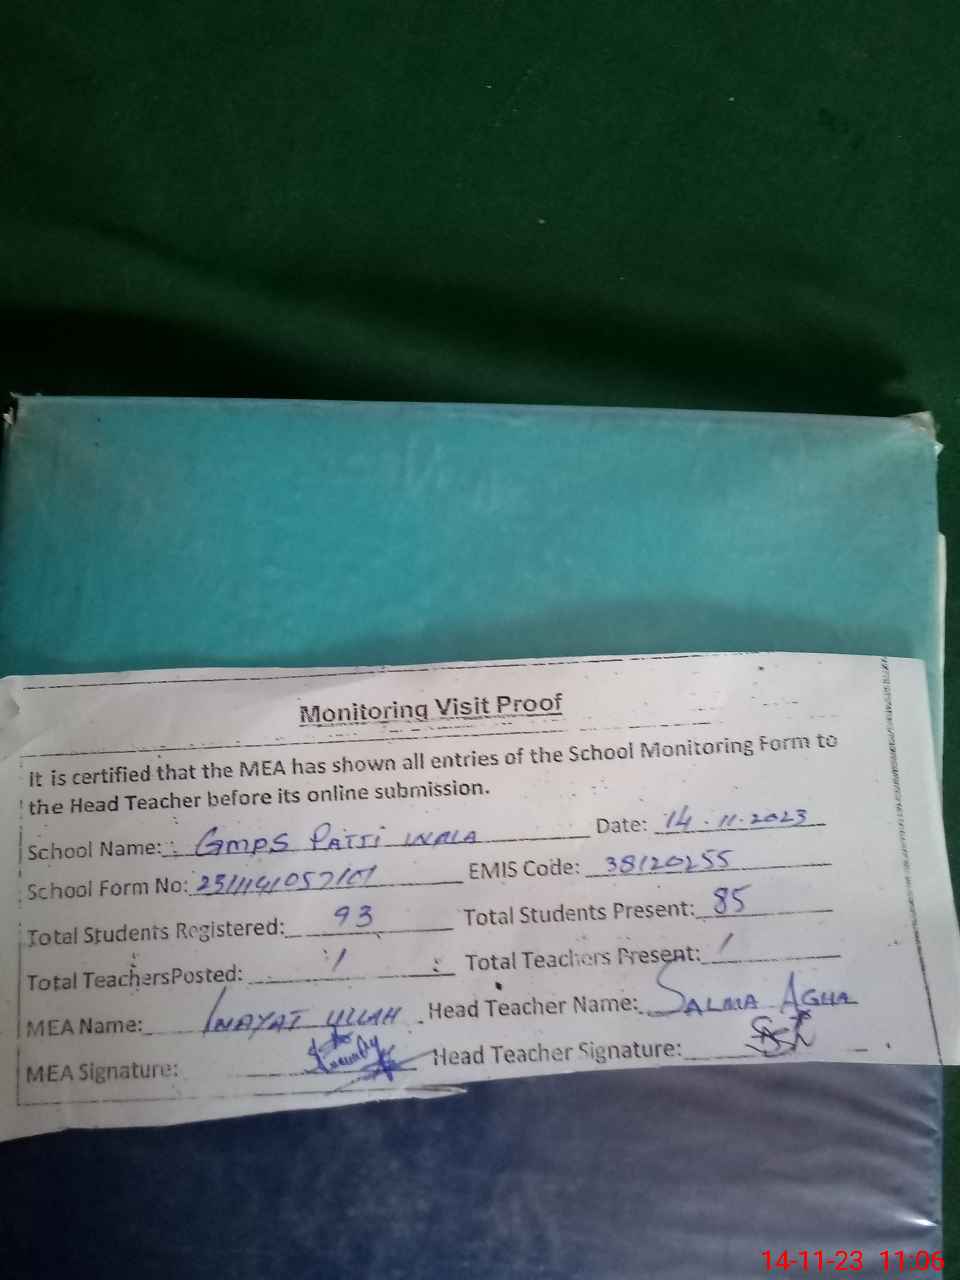 Monitoring Visit Proof
It is certified that the MEA has shown all entries of the School Monitoring Form to
the Head Teacher before its online submission.
School Name: GMPS PATTI WALA Date: 14.11.2023
School Form No: EMIS Code: 38120255
Total Students Registered: 93 Total Students Present: 85
Total TeachersPosted: 1 Total Teachers Present: 1
MEA Name: INAYAT ULLAH Head Teacher Name: SALMA AGHA
MEA Signature: Head Teacher Signature:
14-11-23 11:06